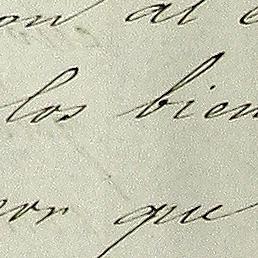 on al e
los bien
por que